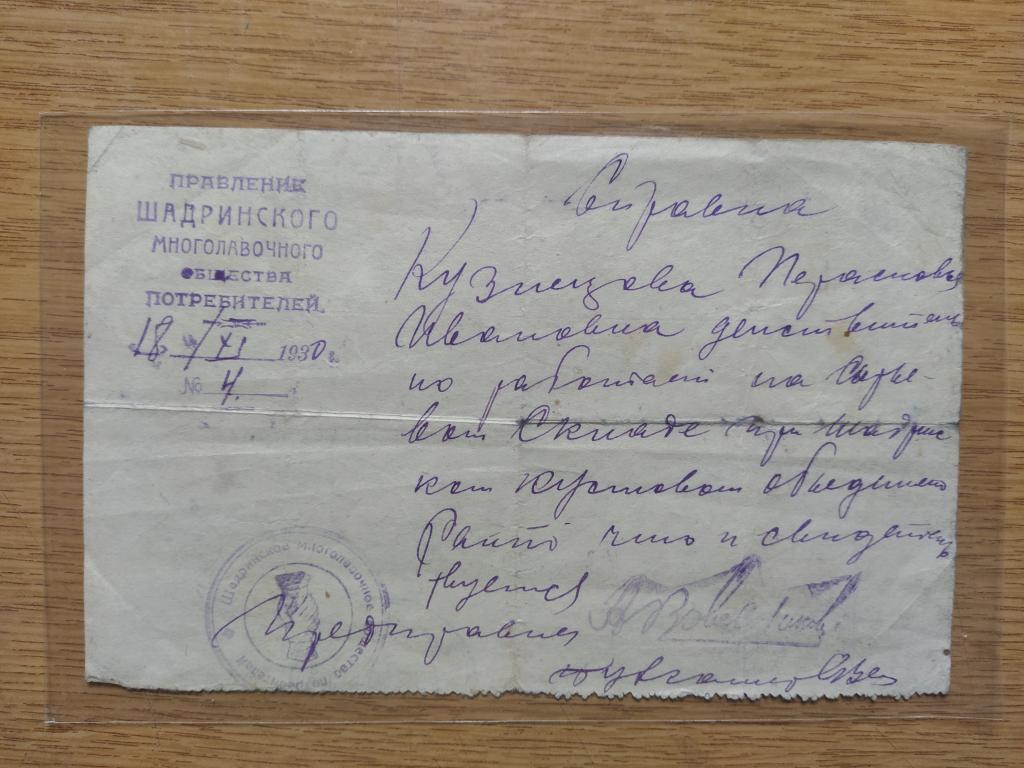 ПРАВЛЕНИЕ
ШАДРИНСКОГО
МНОГОЛАВОЧНОГО
ОБЩЕСТВА
ПОТРЕБИТЕЛЕЙ.
18/XI 1930 г.
№ 4.
Справка
Кузнецова Перасковья
Ивановна действитель
но работает на Сырье-
вом Складе при Шадрин
ском кустовом объединен
Райпо что и свидетель
ствуется
Предправления
Шадринское многолавочное общество потребителей